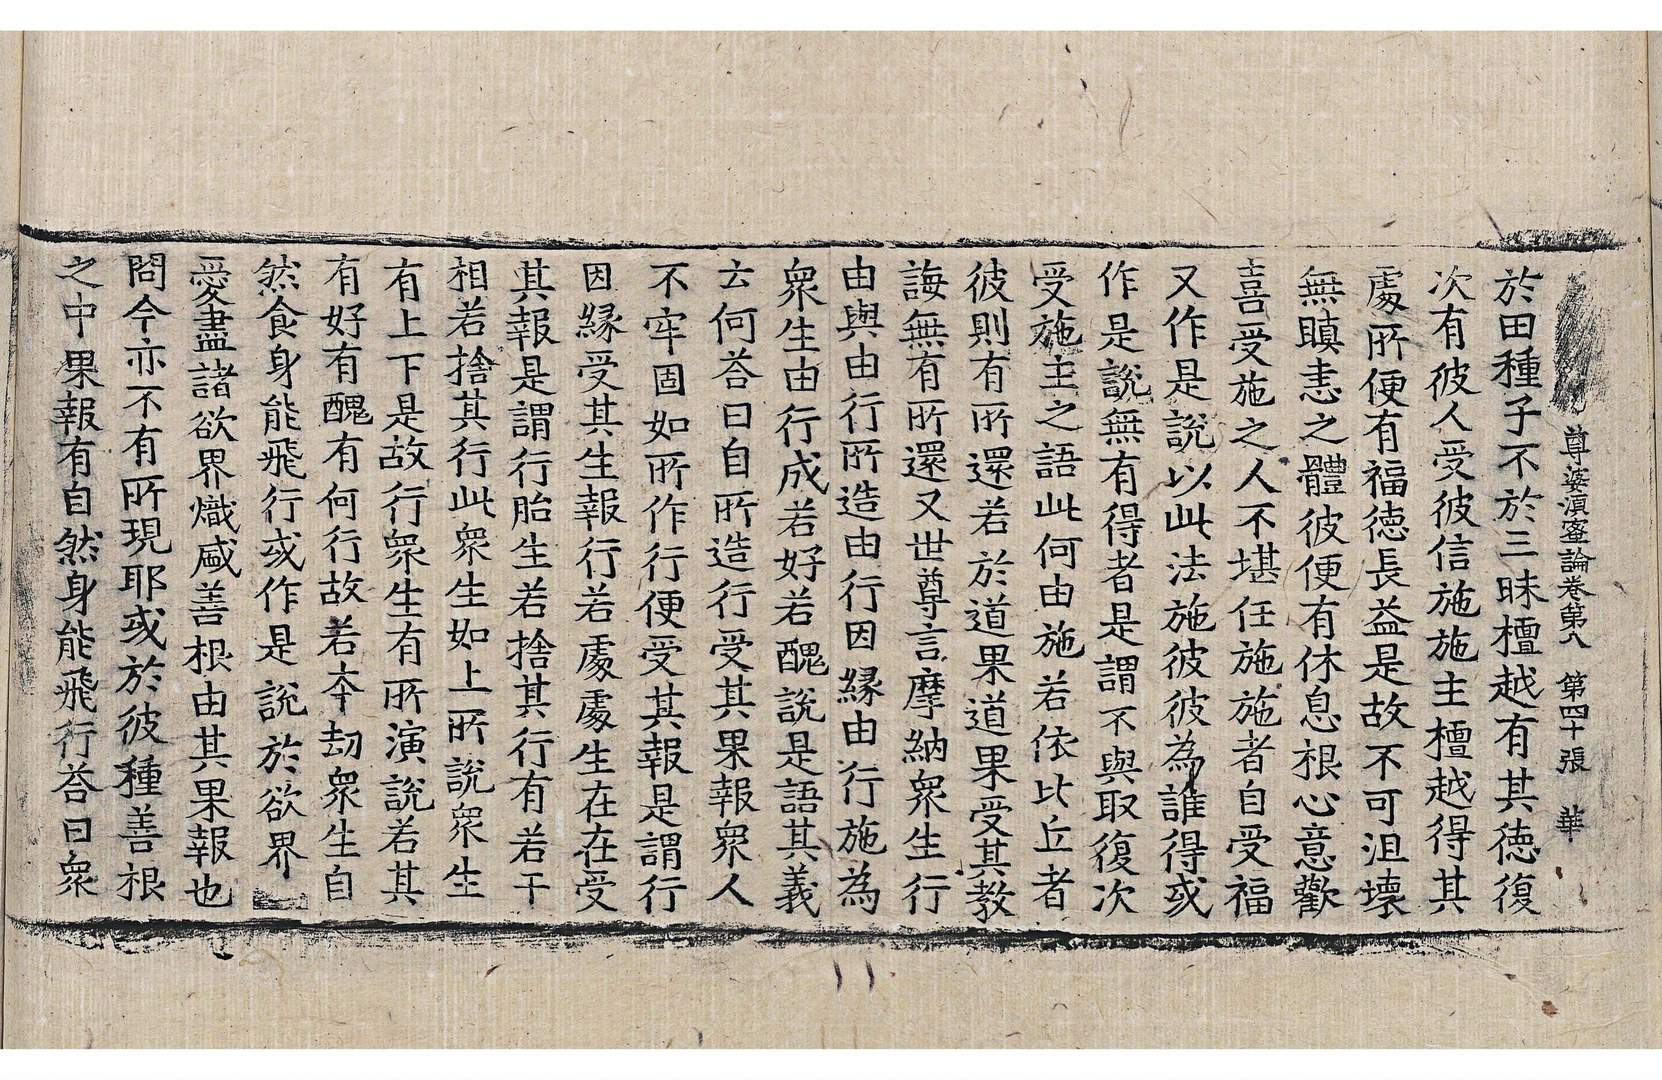 尊婆湏蜜論卷第八　第四十張　華
於田種子不於三昧檀越有其德復
次有彼人受彼信施施主檀越得其
處所便有福德長益是故不可沮壞
無瞋恚之體彼便有休息根心意歡
喜受施之人不堪任施施者自受福
又作是說以此法施彼彼為誰得或
作是說無有得者是謂不與取復次
受施主之語此何由施若依比丘者
彼則有所還若於道果道果受其教
誨無有所還又世尊言摩納衆生行
由與由行所造由行因緣由行施為
衆生由行成若好若醜說是語其義
云何荅曰自所造行受其果報衆人
不牢固如所作行便受其報是謂行
因緣受其生報行若處處生在在受
其報是謂行胎生若捨其行有若干
相若捨其行此衆生如上所說衆生
有上下是故行衆生有所演說若其
有好有醜有何行故若夲劫衆生自
然食身能飛行或作是說於欲界
愛盡諸欲界熾盛善根由其果報也
問今亦不有所現耶或於彼種善根
之中果報有自然身能飛行荅曰衆